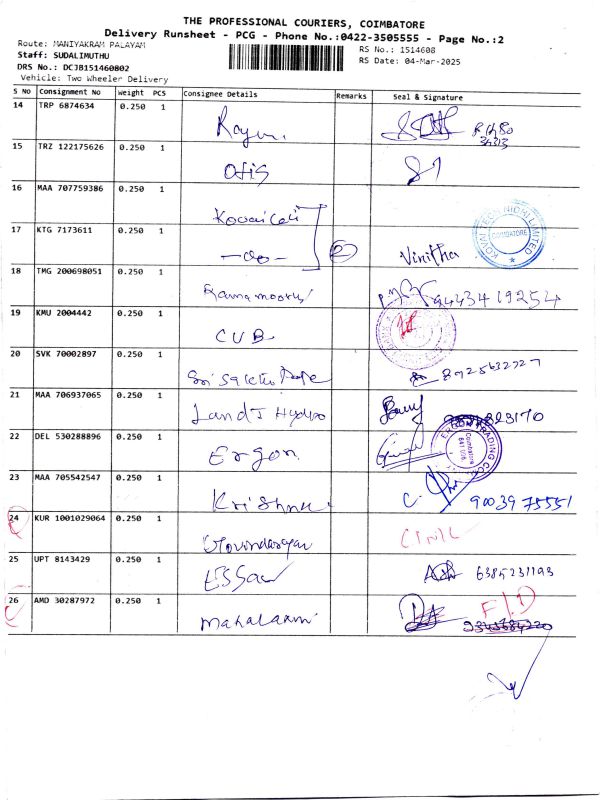 THE PROFESSIONAL COURIERS, COIMBATORE
Delivery Runsheet - PCG - Phone No.:0422-3505555 - Page No.:2
Route: MANIYAKRAM PALAYAM
Staff: SUDALIMUTHU
DRS No.: DCJB151460802
Vehicle: Two Wheeler Delivery
RS No.: 1514608
RS Date: 04-Mar-2025
S No Consignment No Weight PCS Consignee Details Remarks Seal & Signature
14 TRP 6874634 0.250 1
15 TRZ 122175626 0.250 1
16 MAA 707759386 0.250 1 Kovai Cell
17 KTG 7173611 0.250 1 -do- 2 Vinitha
KOVAI TECHNIDRI LIMITED
COIMBATORE
18 TMG 200698051 0.250 1 Ramamoorthi 9443419254
19 KMU 2004442 0.250 1 CUB
20 SVK 70002897 0.250 1
21 MAA 706937065 0.250 1 Land T Hydro
22 DEL 530288896 0.250 1 Ergon
ERGON TRADING CO.
Coimbatore
23 MAA 705542547 0.250 1 Krishna 9003975551
24 KUR 1001029064 0.250 1 Govindarajan
25 UPT 8143429 0.250 1 ESSae 6385231193
26 AMD 30287972 0.250 1 Mahalaxmi